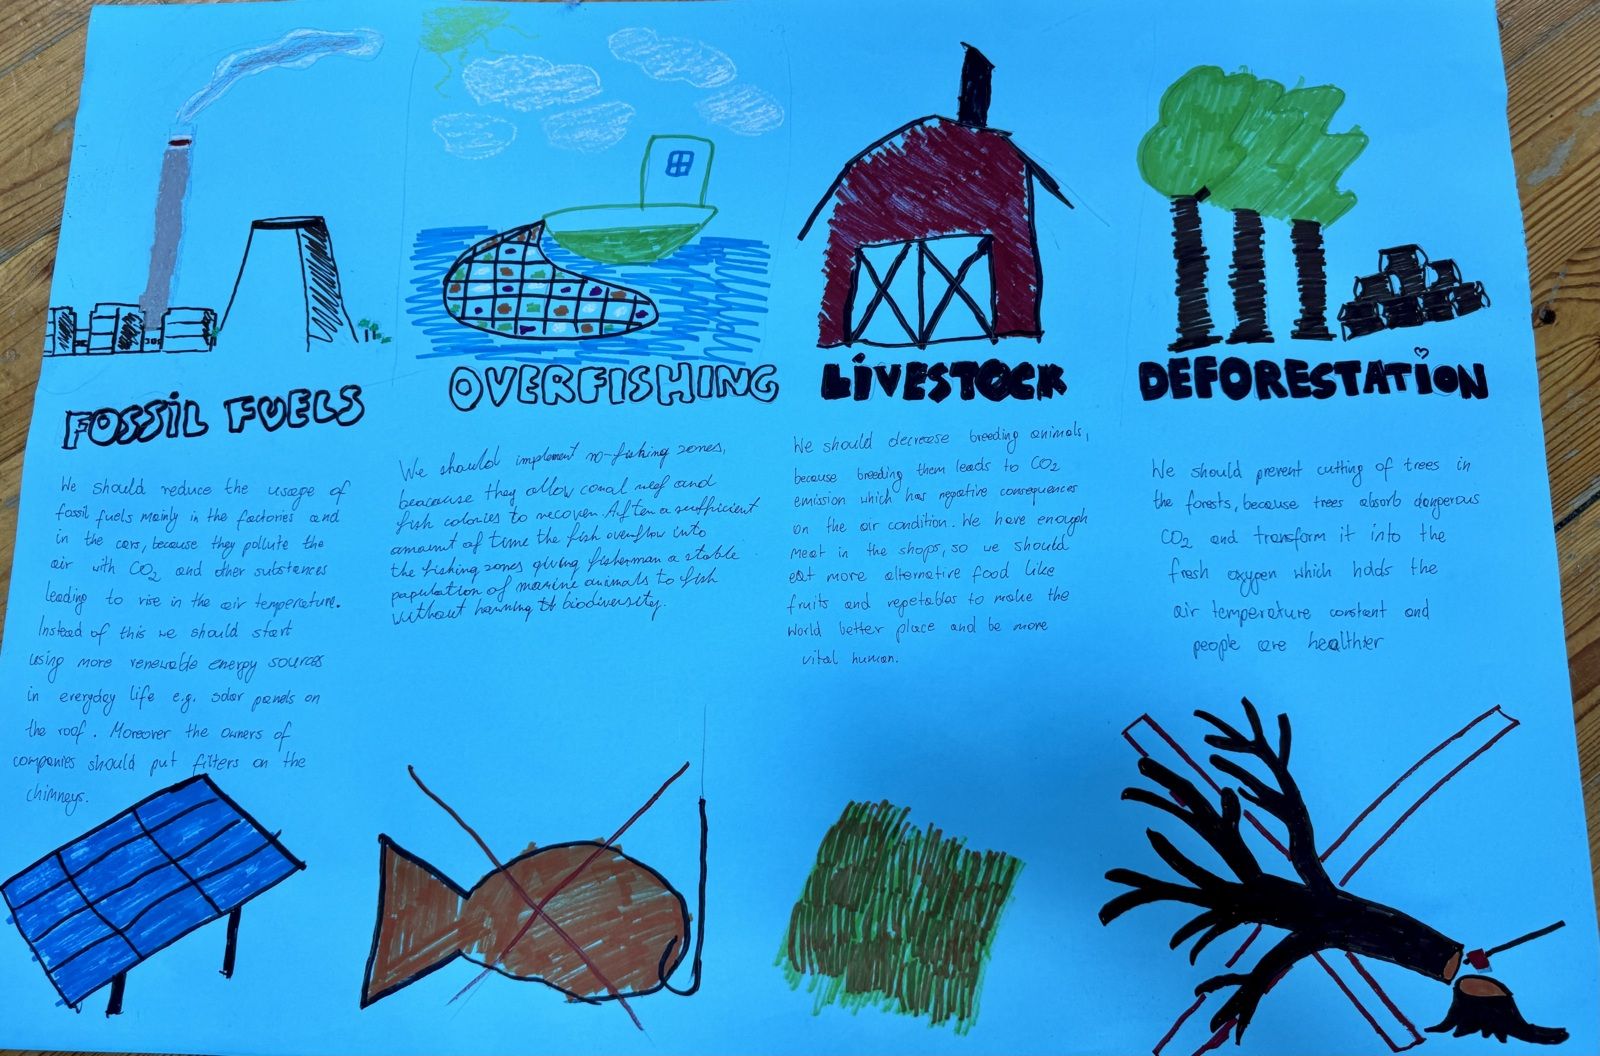 FOSSiL FUELS
We should reduce the usage of
fossil fuels mainly in the factories and
in the cars, because they pollute the
air with CO2 and other substances
leading to rise in the air temperature.
Instead of this we should start
using more renewable energy sources
in everyday life e.g. solar panels on
the roof. Moreover the owners of
companies should put filters on the
chimneys.
OVERFISHING
We should implement no-fishing zones,
beacause they allow coral reef and
fish colonies to recover. After a sufficient
amount of time the fish overflow into
the fishing zones giving fisherman a stable
population of marine animals to fish
without harming biodiversity.
LiVESTOCK
We should decrease breeding animals,
because breeding them leads to CO2
emission which has negative consequences
on the air condition. We have enough
meat in the shops, so we should
eat more alternative food like
fruits and vegetables to make the
world better place and be more
vital human.
DEFORESTATiON
We should prevent cutting of trees in
the forests, because trees absorb dangerous
CO2 and transform it into the
fresh oxygen which holds the
air temperature constant and
people are healthier